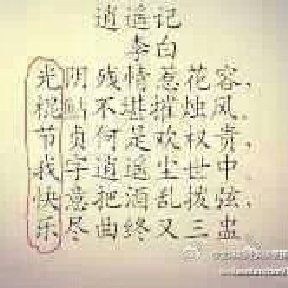 逍遥记
李白
光阴残情惹花容，
棍贴不堪摧烛风，
节贞何足欢权贵，
我字逍遥尘世中，
快意把酒乱拨弦，
乐尽曲终又三盅